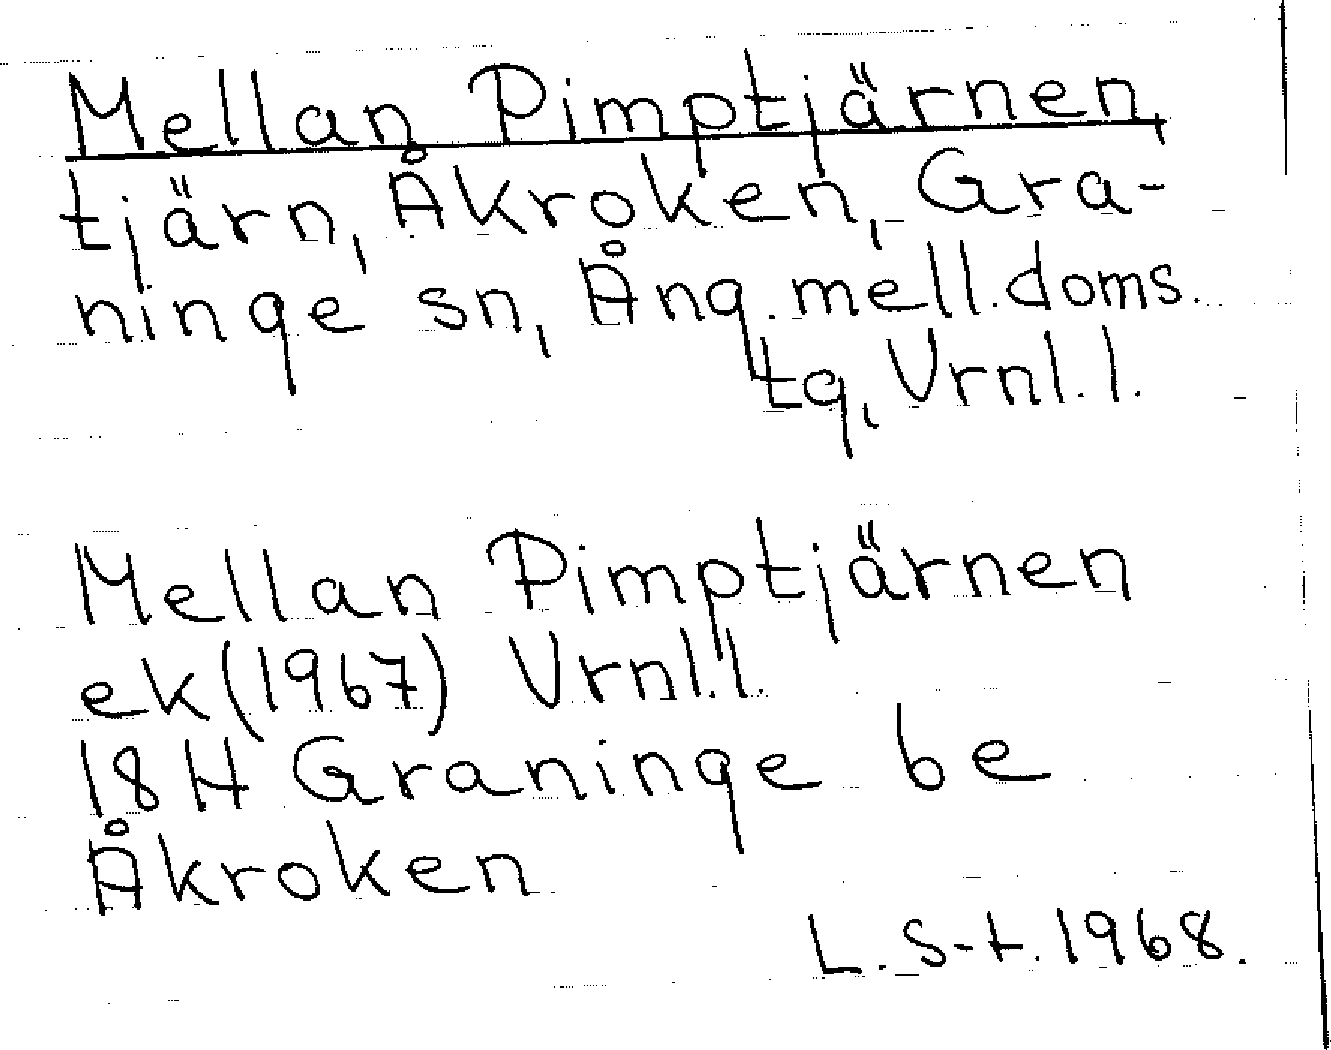 Mellan Pimptjärnen,
tjärn, Åkroken, Gra-
ninge sn, Ång. mell. doms.
tg, Vrnl. l.
Mellan Pimptjärnen
ek (1967) Vrnl. l.
18 H Graninge be
Åkroken
L. S-t. 1968.